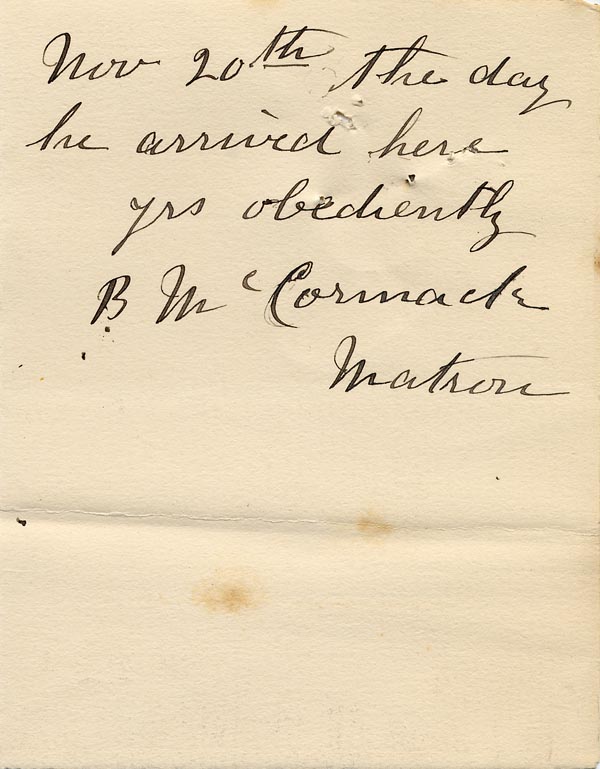 Nov 20th the day
he arrived here
yrs obediently
B McCormack
Matron